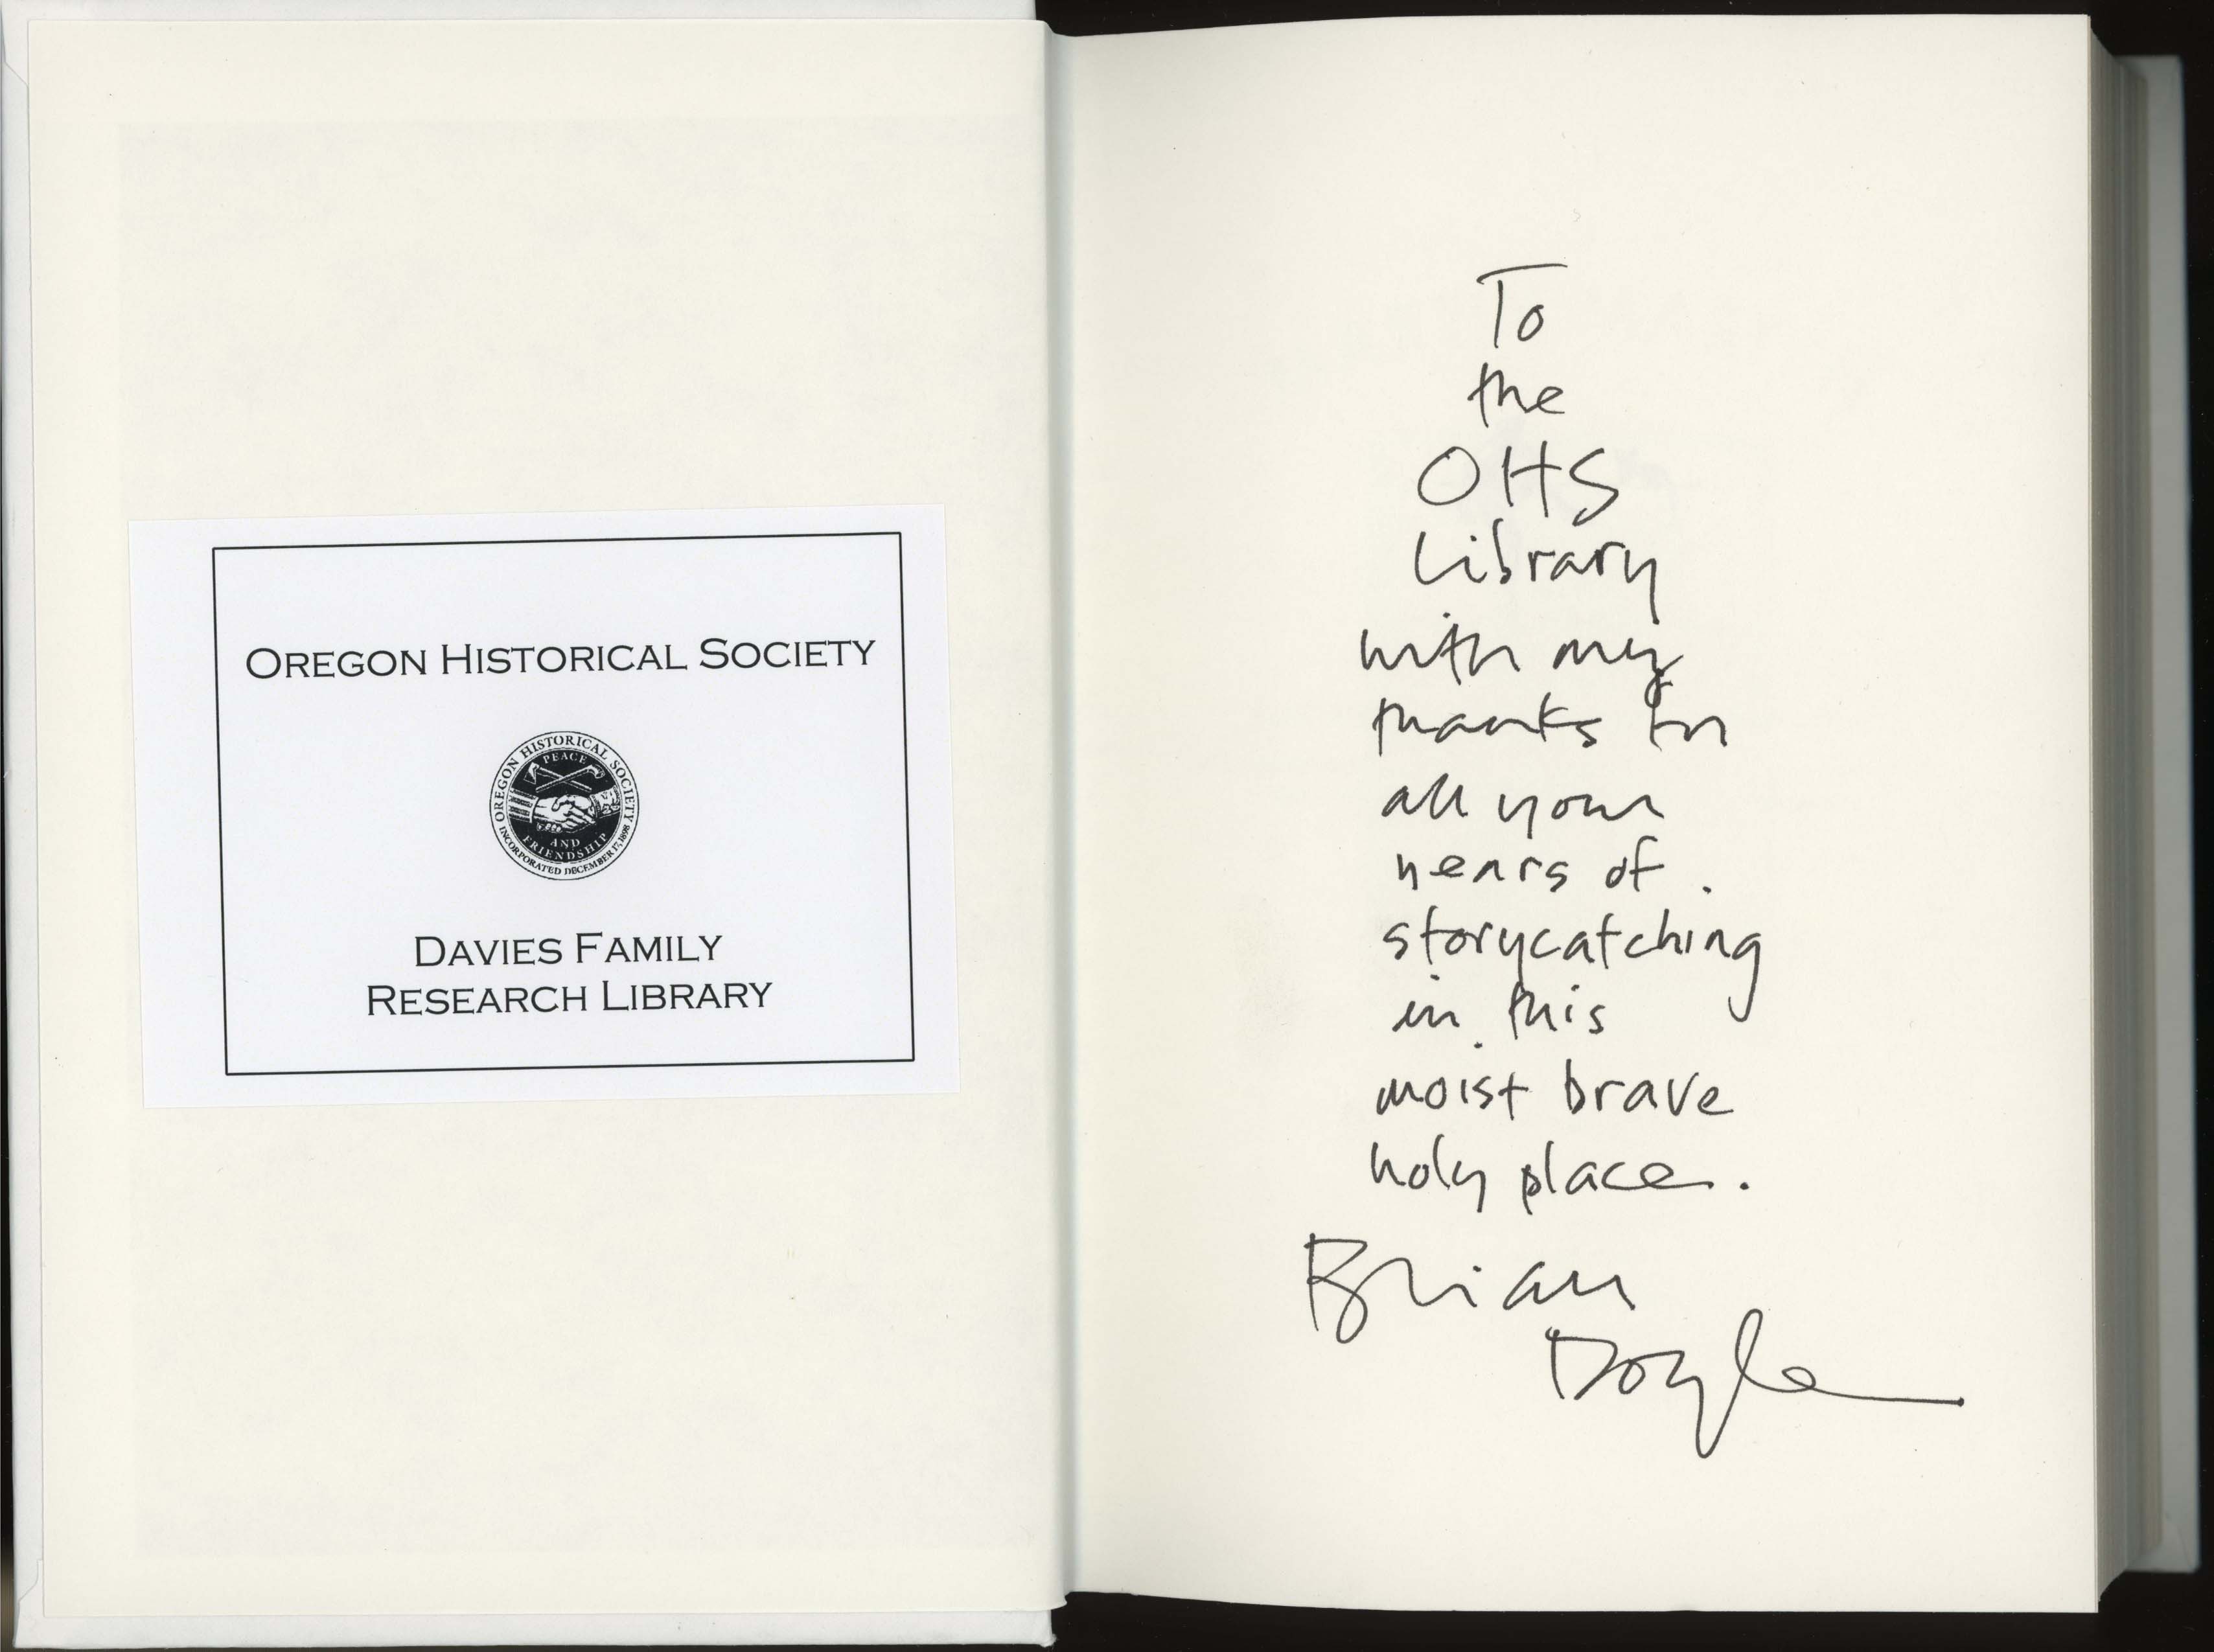 OREGON HISTORICAL SOCIETY
OREGON HISTORICAL SOCIETY
PEACE
AND
FRIENDSHIP
INCORPORATED DECEMBER 17, 1898
DAVIES FAMILY
RESEARCH LIBRARY
To
the
OHS
Library
with my
thanks for
all your
years of
storycatching
in this
moist brave
holy place.
Brian
Doyle